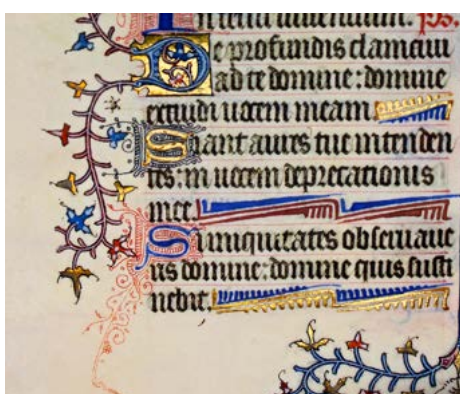 ps.
De profundis clamaui
ad te domine: domine
exaudi uocem meam
Fiant aures tue intenden
tes: in uocem deprecationis
mee.
Si iniquitates obseruaue
ris domine: domine quis susti
nebit.